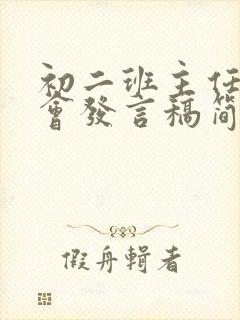 初二班主任
會發言稿简
假舟輯者